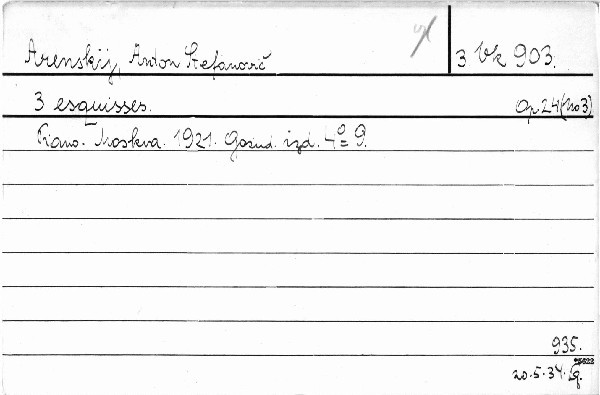 Arenskij, Anton Stefanovič 3 Vk 903.
3 esquisses. Op. 24 (No 3)
Piano. Moskva. 1921. Gosud. izd. 4° 9.
935.
20.5.34.